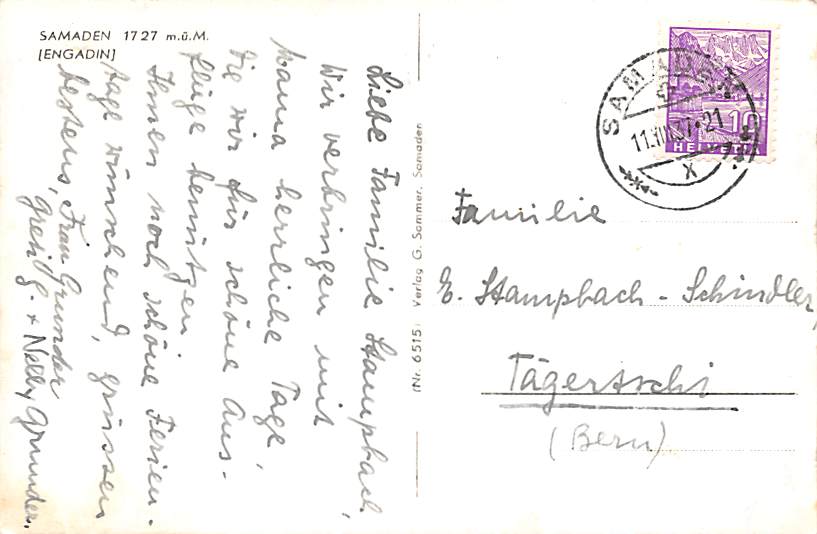 SAMADEN 1727 m.ü.M.
(ENGADIN)
Liebe Familie Stampbach,
Wir verbringen mit
Mama herrliche Tage,
die wir für schöne Aus-
flüge benützen
Ihnen noch schöne Ferien-
tage wünschend, grüssen
bestens, Frau Grunder
Greti G. + Nelly Grunder.
(Nr. 6515) Verlag G. Sommer, Samaden
SAMADEN
11.VIII.37.21
X
10
HELVETIA
Familie
E. Stampbach - Schindler,
Tägertschi
(Bern)